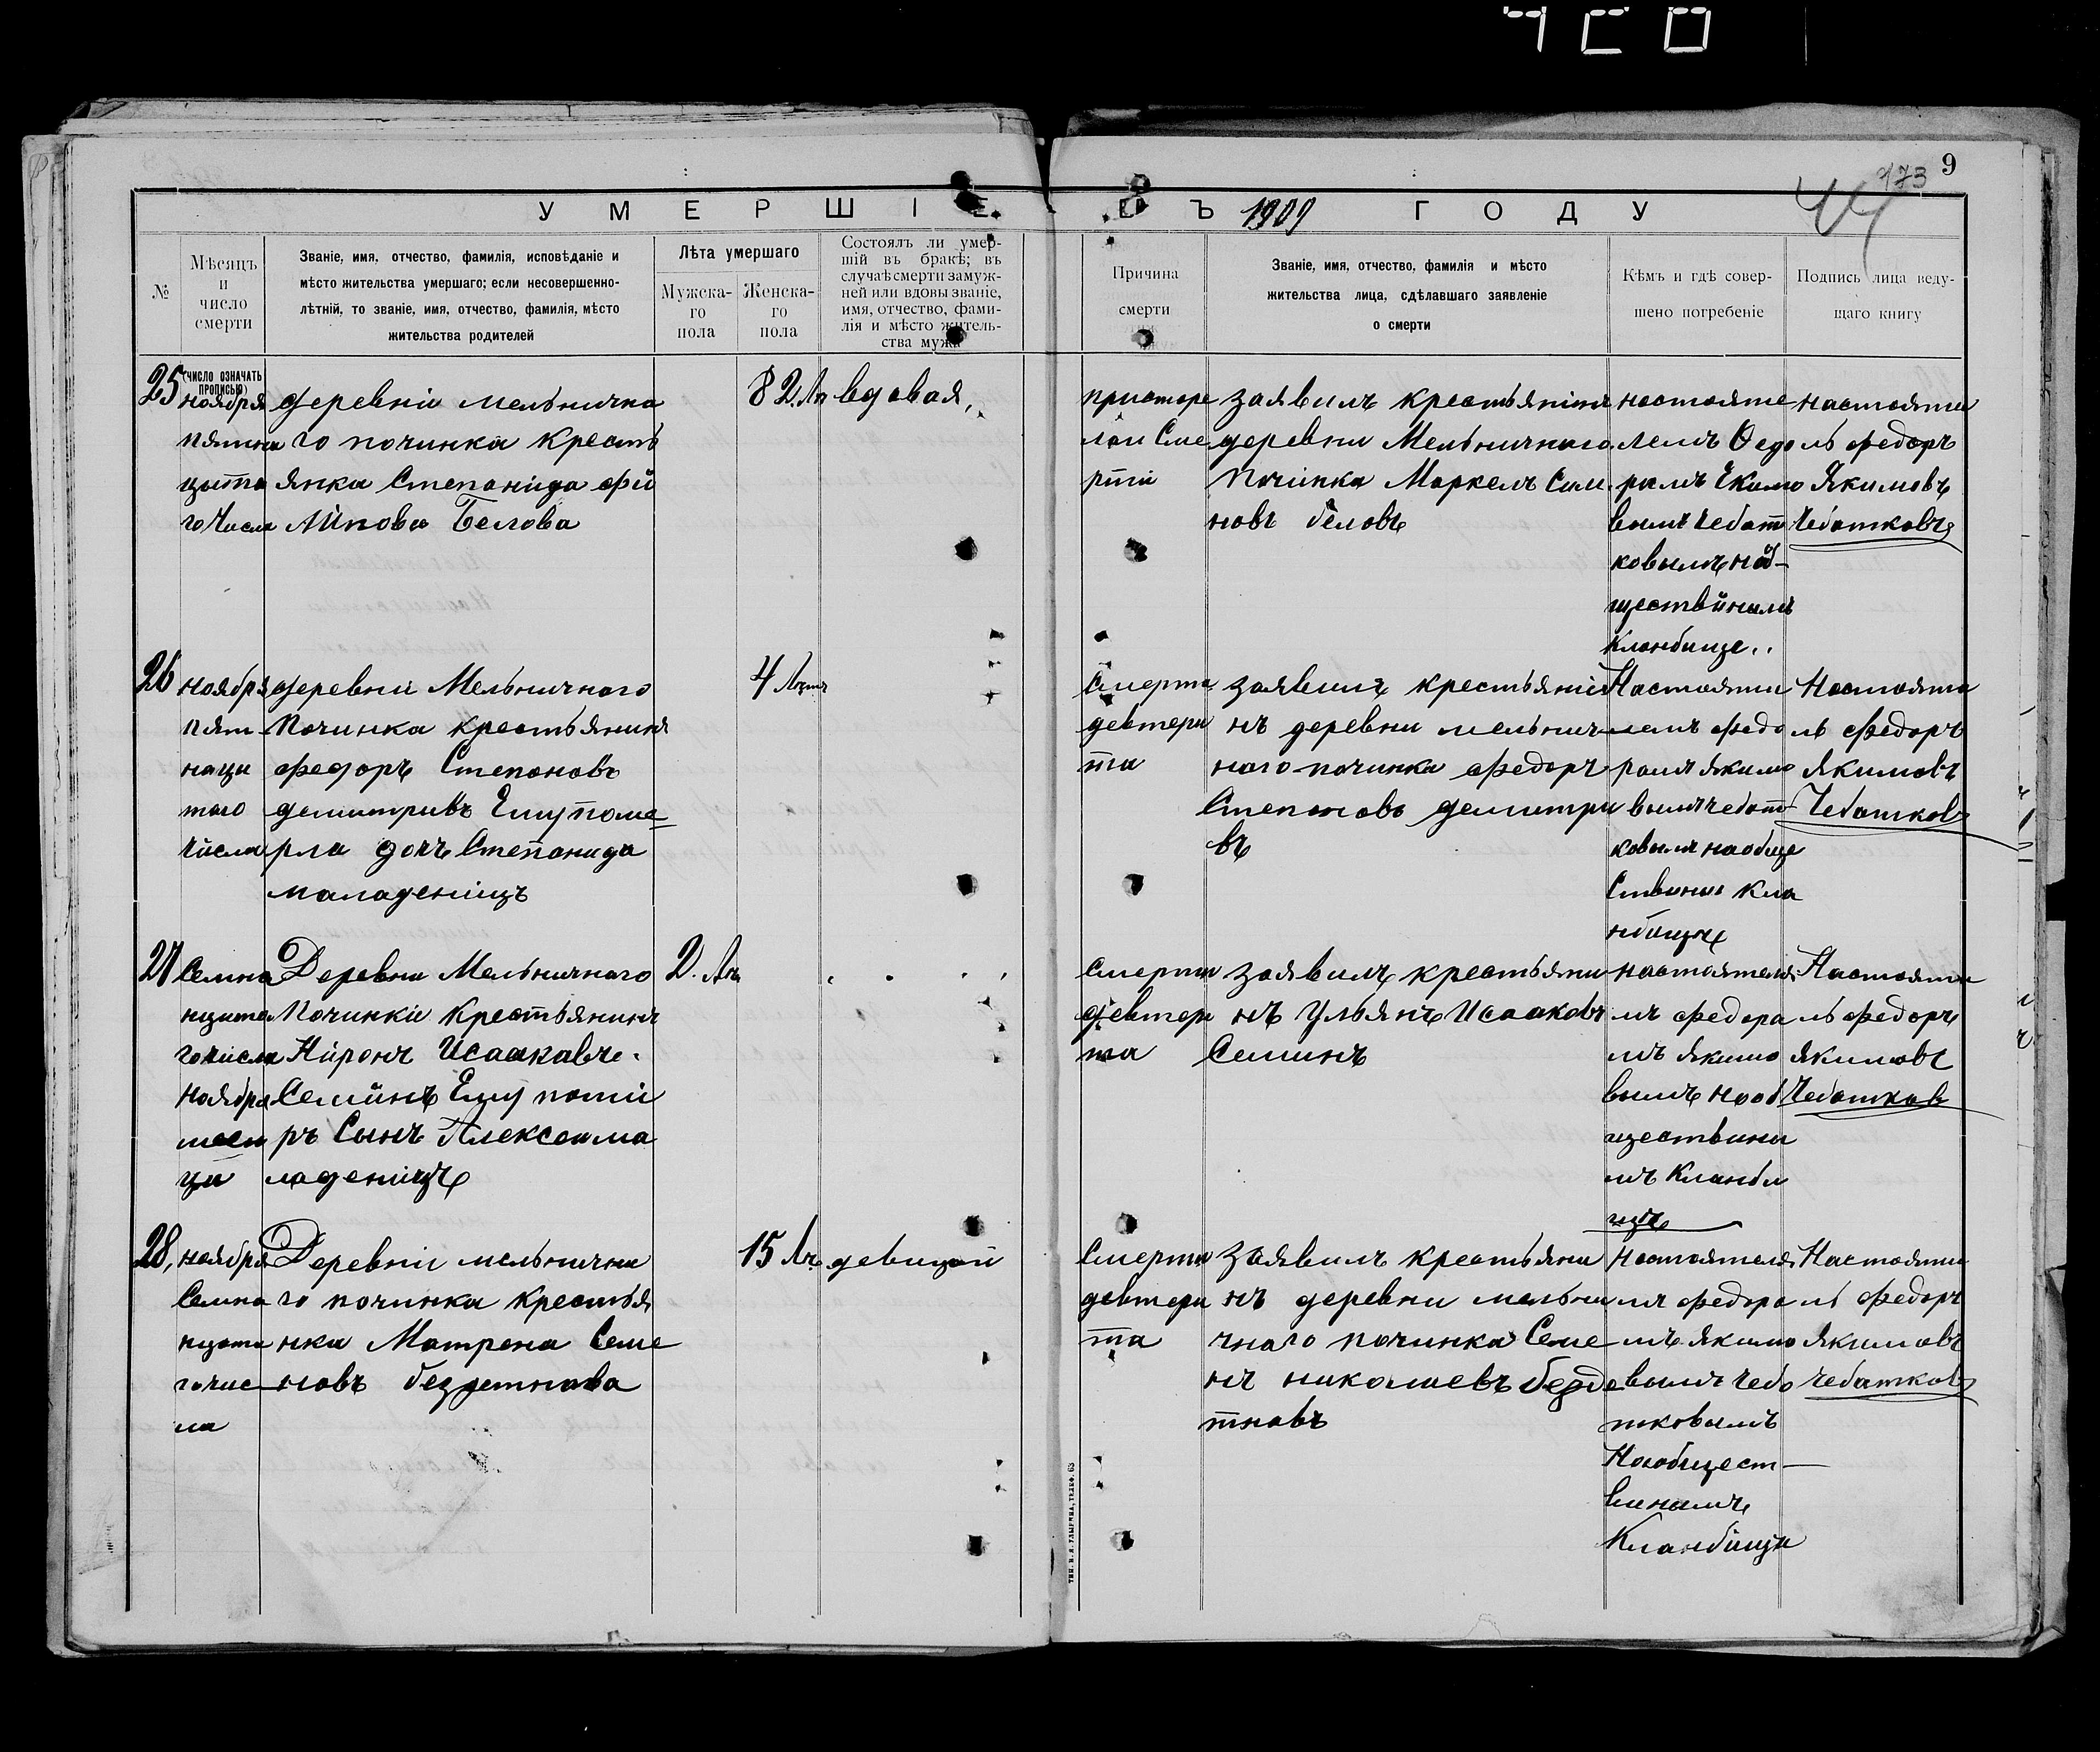 473 9
44
УМЕРШІЕ ВЪ 1909 ГОДУ
№
Мѣсяцъ
и
число
смерти
Званіе, имя, отчество, фамилія, исповѣданіе и
мѣсто жительства умершаго; если несовершенно-
лѣтній, то званіе, имя, отчество, фамилія, мѣсто
жительства родителей
Лѣта умершаго
Мужска-
го
пола
Женска-
го
пола
Состоялъ ли умер-
шій въ бракѣ; въ
случаѣ смерти замуж-
ней или вдовы званіе,
имя, отчество, фами-
лія и мѣсто житель-
ства мужа
Причина
смерти
Званіе, имя, отчество, фамилія и мѣсто
жительства лица, сдѣлавшаго заявленіе
о смерти
Кѣмъ и гдѣ совер-
шено погребеніе
Подпись лица веду-
щаго книгу
25
(число означать
прописью)
ноября
пятна
цата
го числа
деревни мельнична
го починка кресть
янка Степанида фи
липова Белова
82 лѣ
вдовая,
присторе
лои сме
рти
заявилъ крестьянинъ
деревни Мельничнаго
починка Маркелъ Сим
новъ беловъ
настояте
лемъ Федо
ромъ Екимо
вымъ чебот
ковымъ наоб-
ществинымъ
кланбище..
настояти
ль федоръ
Якимовъ
Чеботковъ
26
ноября
пят
наци
таго
числа
деревни Мельничного
починка крестьянинъ
федоръ Степановъ
демитривъ Ему поме-
рла дочъ Степанида
маладеницъ
4 летъ
Смерти
девтери
та
заявилъ крестьяни
нъ деревни мельнич
наго починка федоръ
Степановъ демитри
въ
Настояти
лемъ федо
ромъ якимо
вымъ чебот
ковымъ наобще
ствиныи кла
нбищъ
Настояти
ль федоръ
якимовъ
Чеботковъ
27
Семна
нцата
го числа
ноября
меся
ца
Деревни Мельничнаго
Починки крестьянинъ
Миронъ Исаакавъ
Семинъ Ему поми
ръ Сынъ Алексеима
ладеницъ
2. лѣ
Смерти
девтери
та
заявилъ крестьяни
нъ Ульянъ Исааковъ
Семинъ
настоятеле
мъ федора
мъ якимо
вымъ нооб
ществины
мъ кланби
щъ
Настояти
ль федоръ
якимовъ
Чеботков
28,
ноября
Семна
нцати
го чис
ла
Деревни мельнична
го починка крестья
нка Матрена Семе
новъ бездетнова
15 лѣ
девицой
Смерти
девтери
та
заявилъ крестьяни
нъ деревни мельни
чнаго починка Семе
нъ николаевъ безде
тновъ
Настоятеле
мъ федоро
мъ якимо
вымъ чебо
тковымъ
Наобщест
винымъ
Кланбищи
Настояти
ль федоръ
якимовъ
чеботковъ